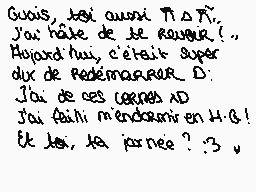 Ouais, toi aussi ñ∆ñ,,
J'ai hâte de te revoir !..
Aujourd'hui, c'était super
dur de redémarrer D:
J'ai de ces cernes xD
J'ai failli m'endormir en H-G !
Et toi, ta jornée ? :3